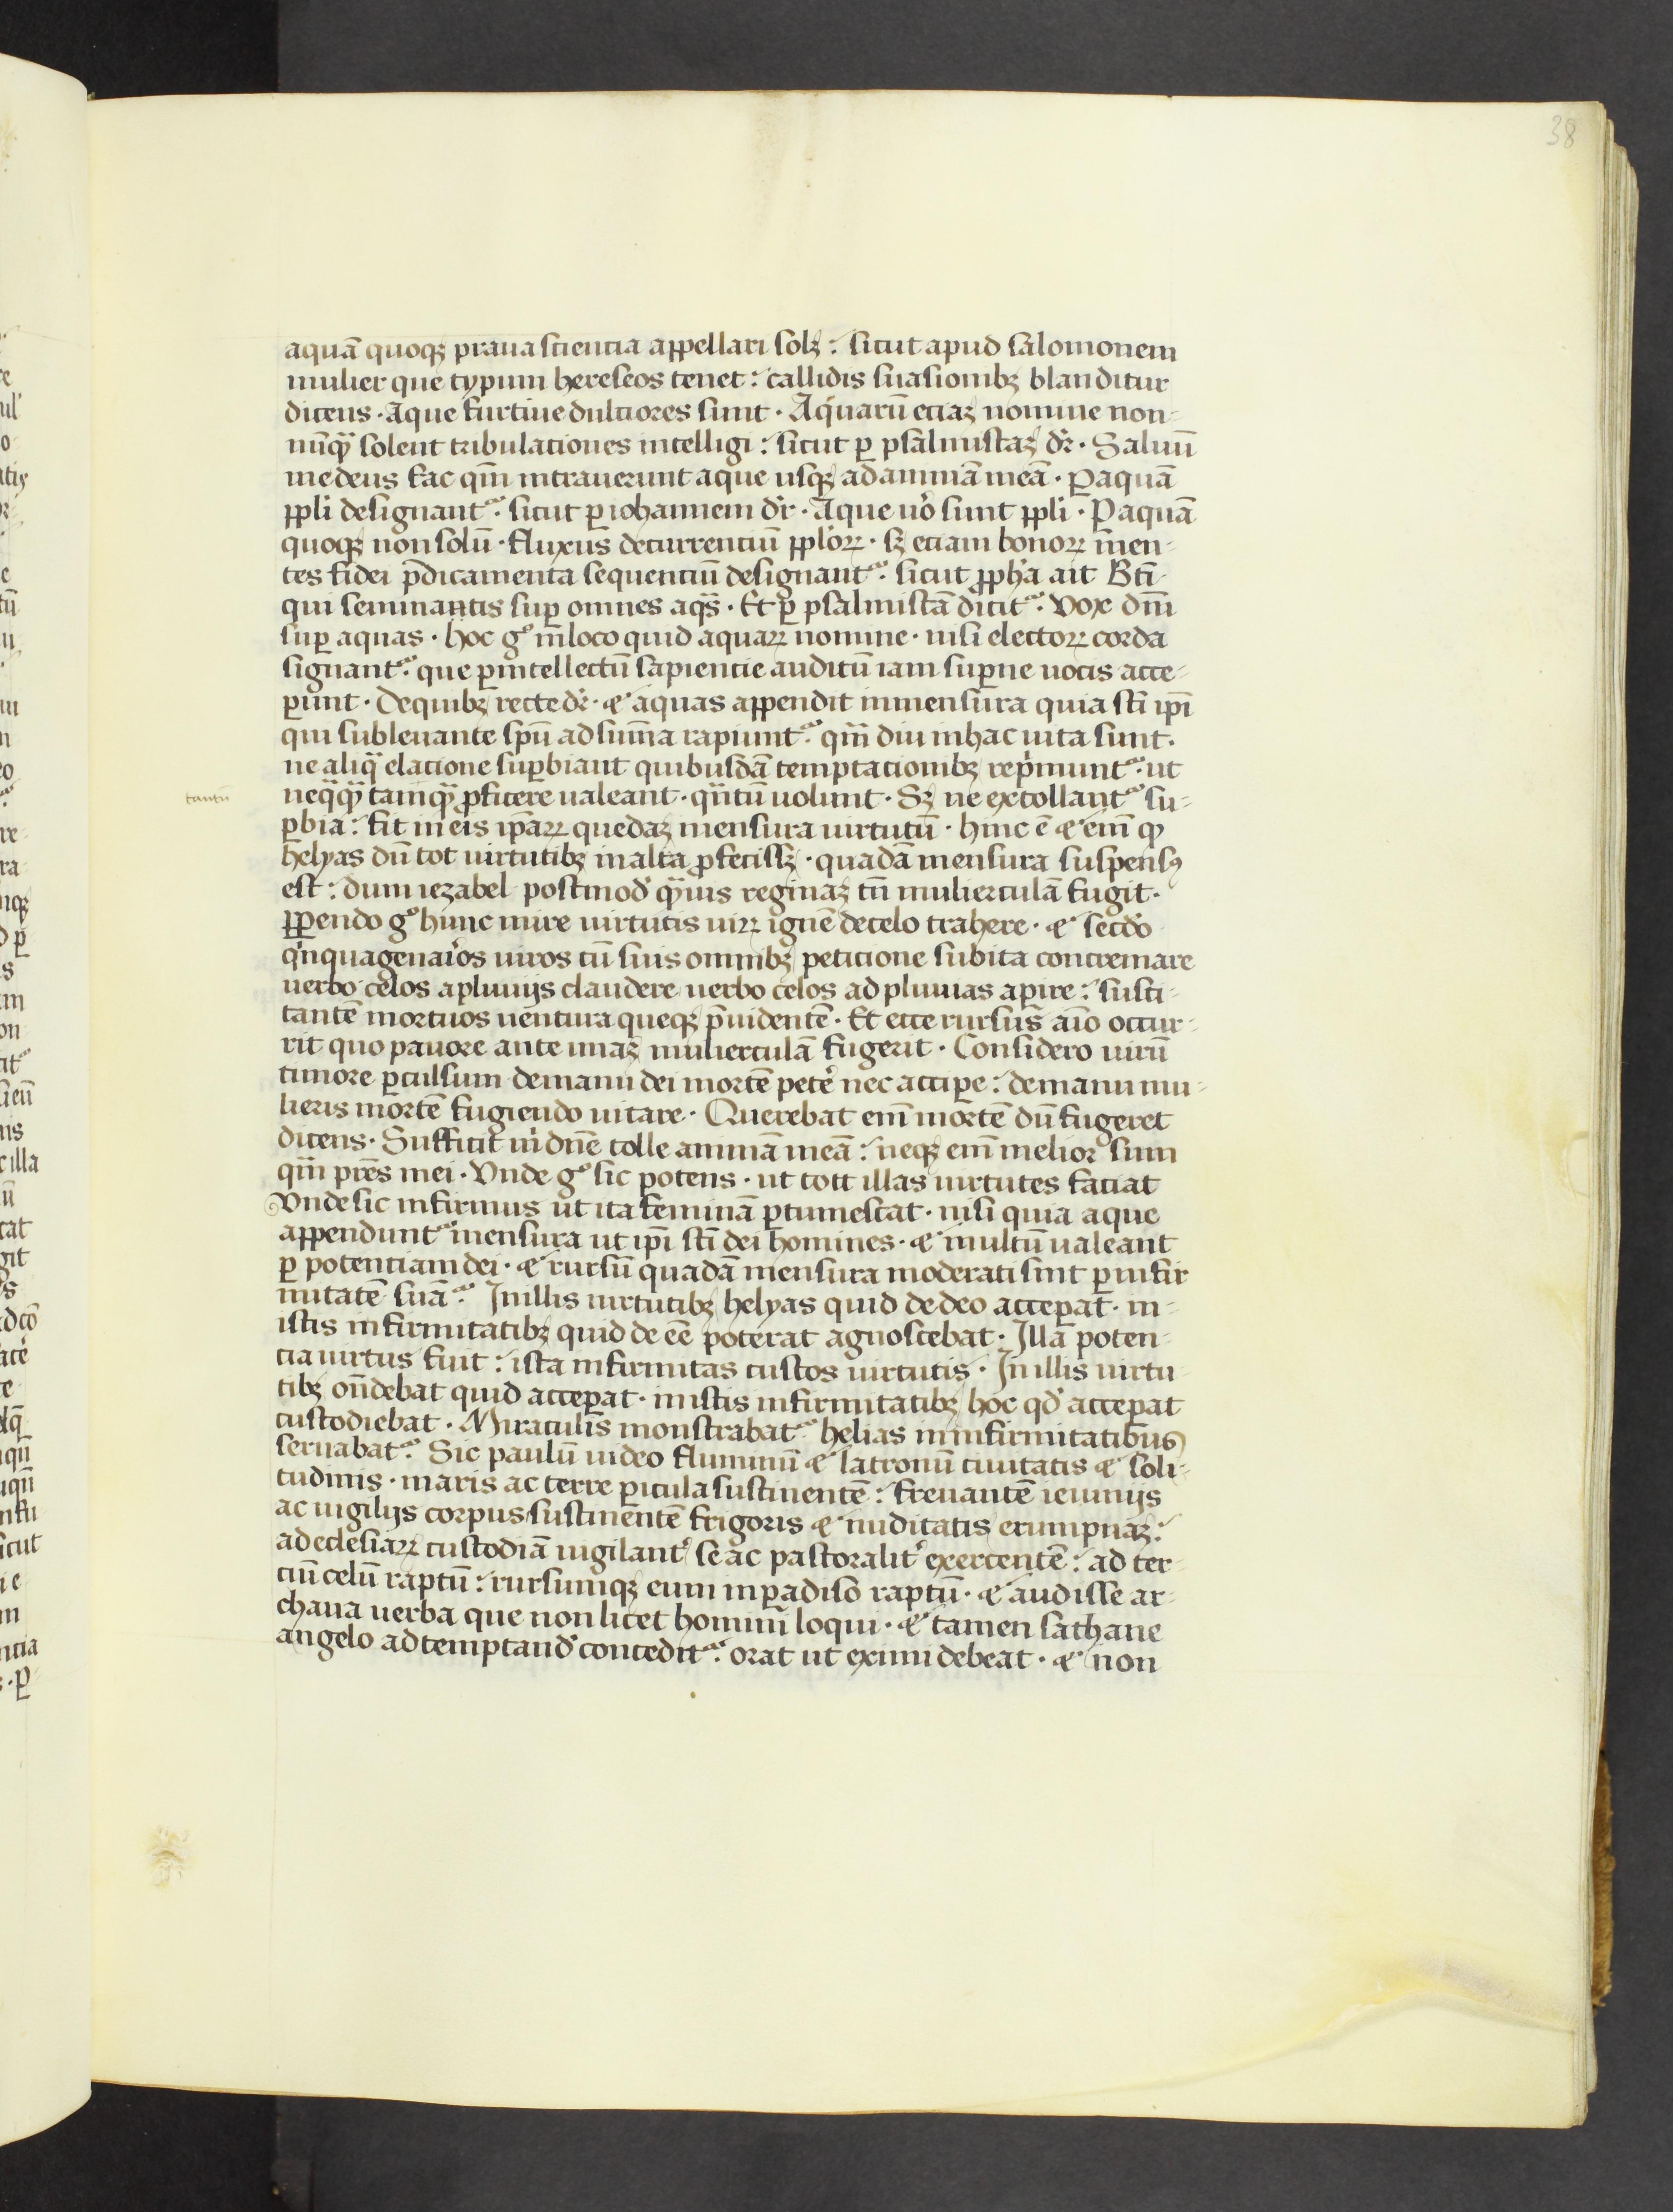 38
aquā quoqȝ praua sciencia appellari solȝ : sicut apud salomonem
mulier que typum hereseos tenet : callidis suasionibȝ blanditur
dicens · Aque furtiue dulciores sunt · Aquarū eciaȝ nomine non-
nūqᷓ solent tribulaciones intelligi : sicut ꝑ psalmistaȝ dr̄ · Saluū
me deus fac qm̄ intrauerunt aque usqȝ ad animā meā · Ꝑ aquā
ppl̓i designant᷑ · sicut ꝑ iohannem dr̄ · Aque uo̓ sunt ppl̓i · Ꝑ aquā
quoqȝ non solū · fluxus decurrenciū pplo̓ꝝ · sȝ eciam bonoꝝ men-
tes fidei p̄dicamenta sequenciū designant᷑ · sicut ꝓph̓a ait Bt̄i
qui seminantis suꝑ omnes aqᷓs · Et ꝑ psalmistā dicit᷑ · Vox dn̄i
suꝑ aquas · hoc gͦ in loco quid aquaꝝ nomine · nisi electoꝝ corda
signant᷑ · que ꝑ intellectū sapiencie auditū iam suꝑne uocis acce-
ꝑunt · De quibȝ recte dr̄ · ⁊ aquas appendit in mensura quia sc̄i ip̄i
qui subleuante sp̄u ad sum̄a rapiunt᷑ · qm̄ diu in hac uita sunt ·
ne aliqᷓ elacione suꝑbiant quibusdā temptacionibȝ rep̓munt᷑ · ut
tantū
neqᷓqᷓ tamqᷓ ꝓficere ualeant · qᷓntū uolunt · Sȝ ne extollant᷑ su-
ꝑbia : fit in eis ip̄aꝝ quedaȝ mensura uirtutū · hinc ē ⁊ em̄ ꝙ
helyas dū tot uirtutibȝ in alta ꝓfecissȝ · quadā mensura suspensꝰ
est : dum iezabel postmod̓ qᷓuis reginaȝ tn̄ mulierculā fugit ·
Ꝑpendo gͦ hunc mire uirtutis uiꝝ ignē de celo trahere · ⁊ secd̓o
q̓nquagenarios uiros cū suis omnibȝ peticione subita concremare
uerbo celos a pluuijs claudere uerbo celos ad pluuias aꝑire : susci-
tantē mortuos uentura queqȝ p̄uidentē · Et ecce rursus aīo occur-
rit quo pauore ante unaȝ mulierculā fugerit · Considero uirū
timore ꝑculsum de manu dei mortē pete̓ nec acciꝑe : de manu mu-
lieris mortē fugiendo uitare · Querebat em̄ mortē dū fugeret
dicens · Sufficit m̓ dn̄e tolle animā meā : neqȝ em̄ melior sum
qᷓm pr̄es mei · Vnde gͦ sic potens · ut tott illas uirtutes faciat
Vnde sic infirmus ut ita feminā ꝑtumescat · nisi quia aque
appendunt᷑ mensura ut ip̄i sc̄i dei homines · ⁊ multū ualeant
ꝑ potentiam dei · ⁊ rursū quadā mensura moderati sint ꝑ infir
mitatē suā᷑ · In illis uirtutibȝ helyas quid de deo acceꝑat · in-
istis infirmitatibȝ quid de eē poterat agnoscebat · Illa poten-
cia uirtus fuit : ista infirmitas custos uirtutis · In illis uirtu-
tibȝ on̄debat quid acceꝑat · in istis infirmitatibȝ hoc qd̓ acceꝑat
custodiebat · Miraculis monstrabat᷑ helias in infirmitatibus
seruabat᷑ · Sic paulū uideo fluminū ⁊ latronū ciuitatis ⁊ soli-
tudinis · maris ac terre ꝑicula sustinentē : frenantē ieiunijs
ac uigilijs corpus sustinentē frigoris ⁊ nuditatis erumpnaȝ :
ad eclesiaꝝ custodiā uigilant̓ se ac pastoralit̓ exercentē : ad ter-
ciū celū raptū : rursumqȝ eum in ꝑadiso raptū · ⁊ audisse ar-
chana uerba que non licet homini loqui · ⁊ tamen sathane
angelo ad temptand̓ concedit᷑ · orat ut eximi debeat · ⁊ non